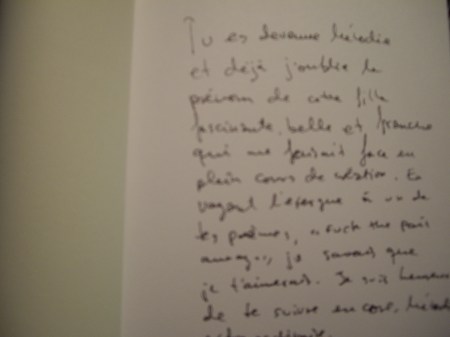 Tu es devenue hérédia
et déjà j'oublie le
prénom de cette fille
fascinante, belle et franche
qui me faisait face en
plein cours de création. En
voyant l'exergue à un de
tes poèmes, « fuck the pain
away », je savais que
je t'aimerais. Je suis
de te suivre encore,